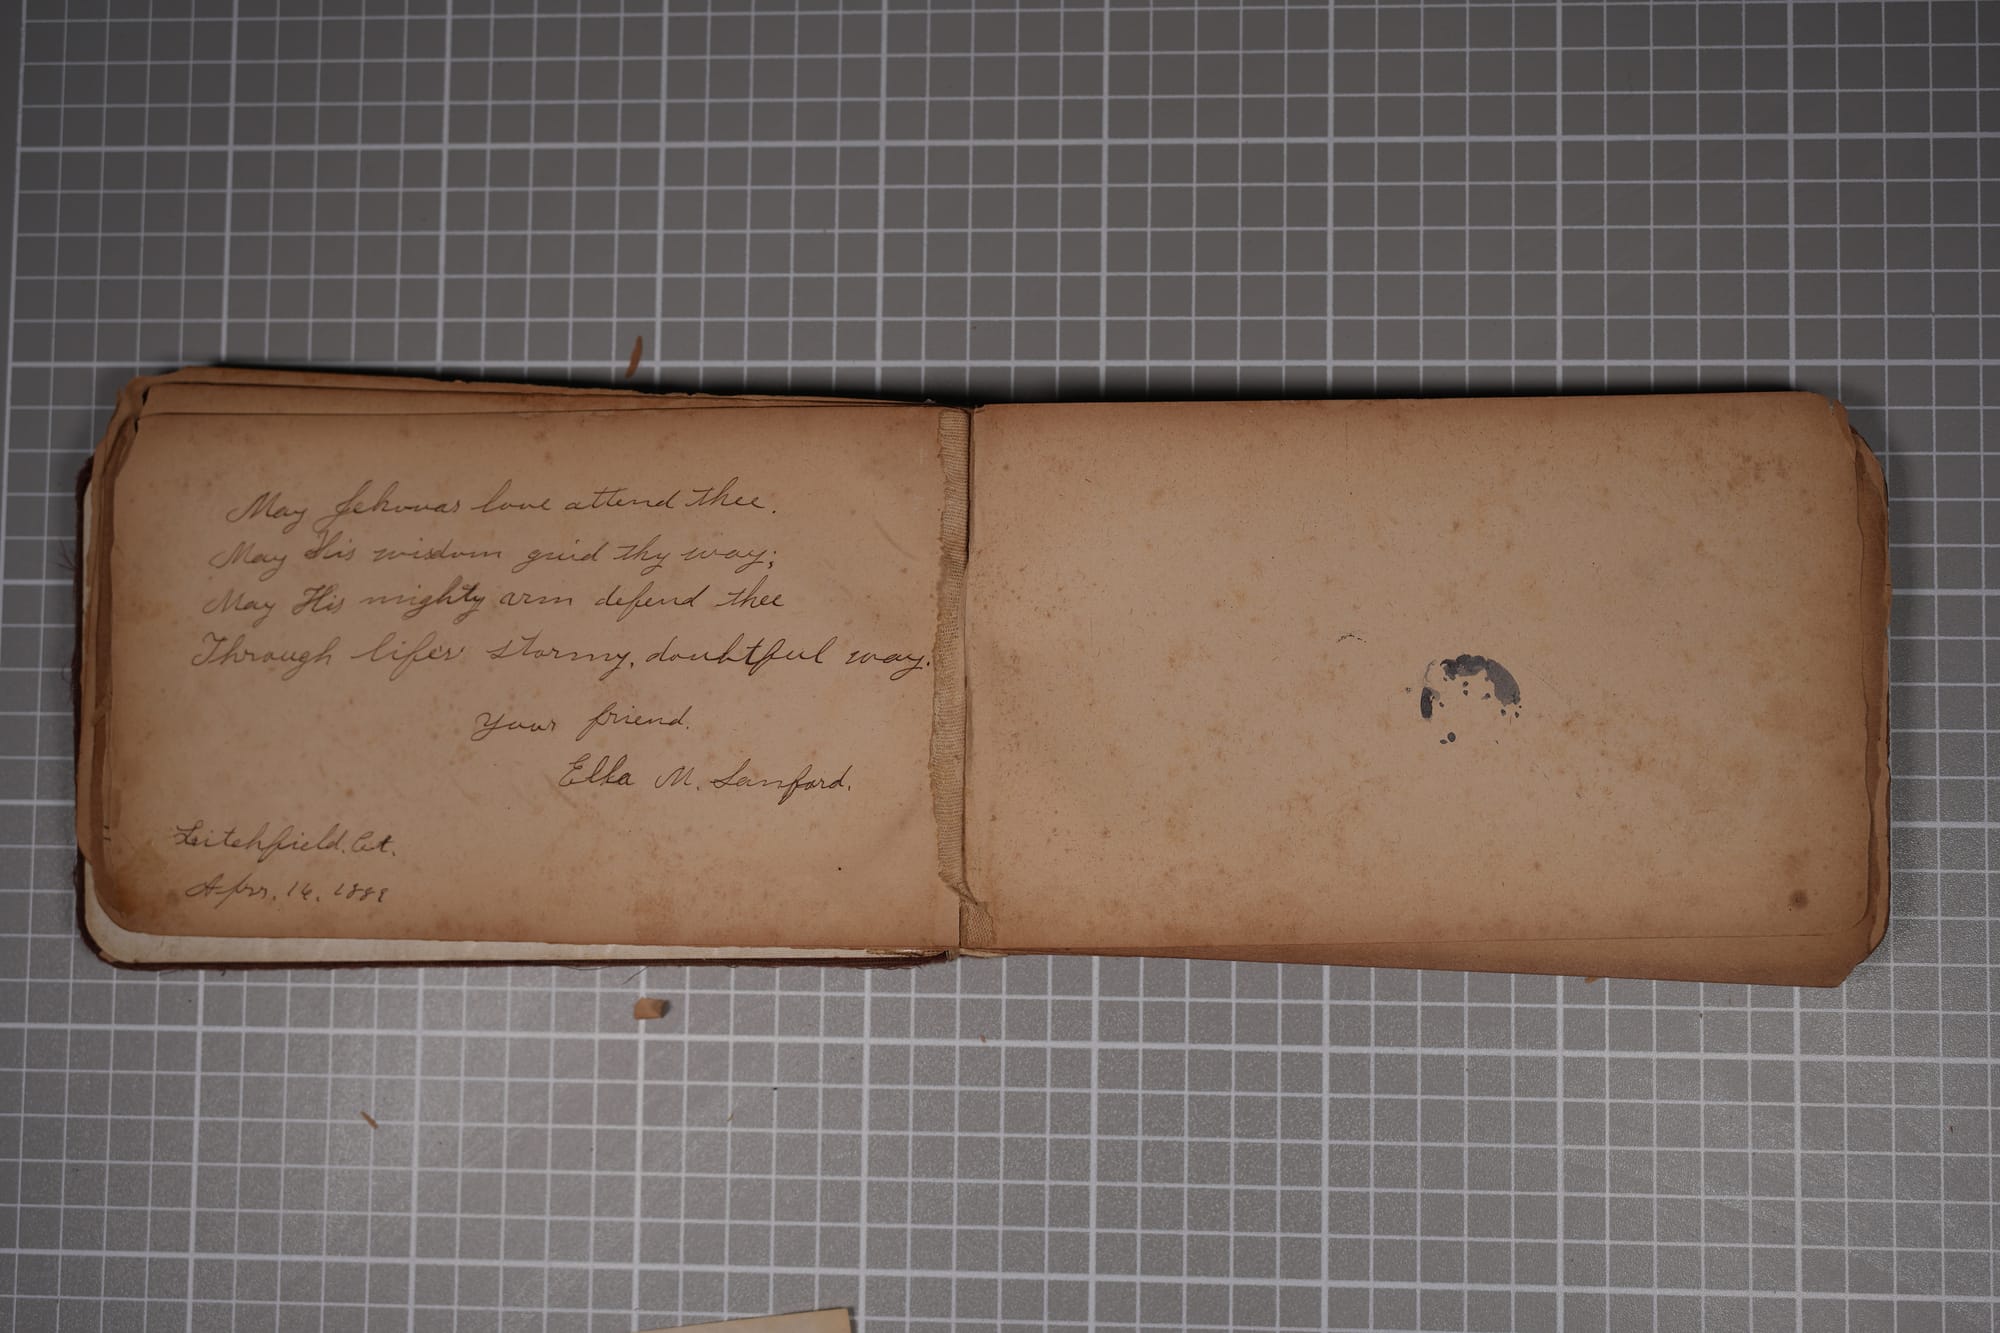 May Jehovas love attend thee.
May His wisdom guid thy way;
May His mighty arm defend thee
Through lifes' stormy, doubtful way.
Your friend.
Ella M. Sanford.
Litchfield. Ct.
Apr. 16. 1889